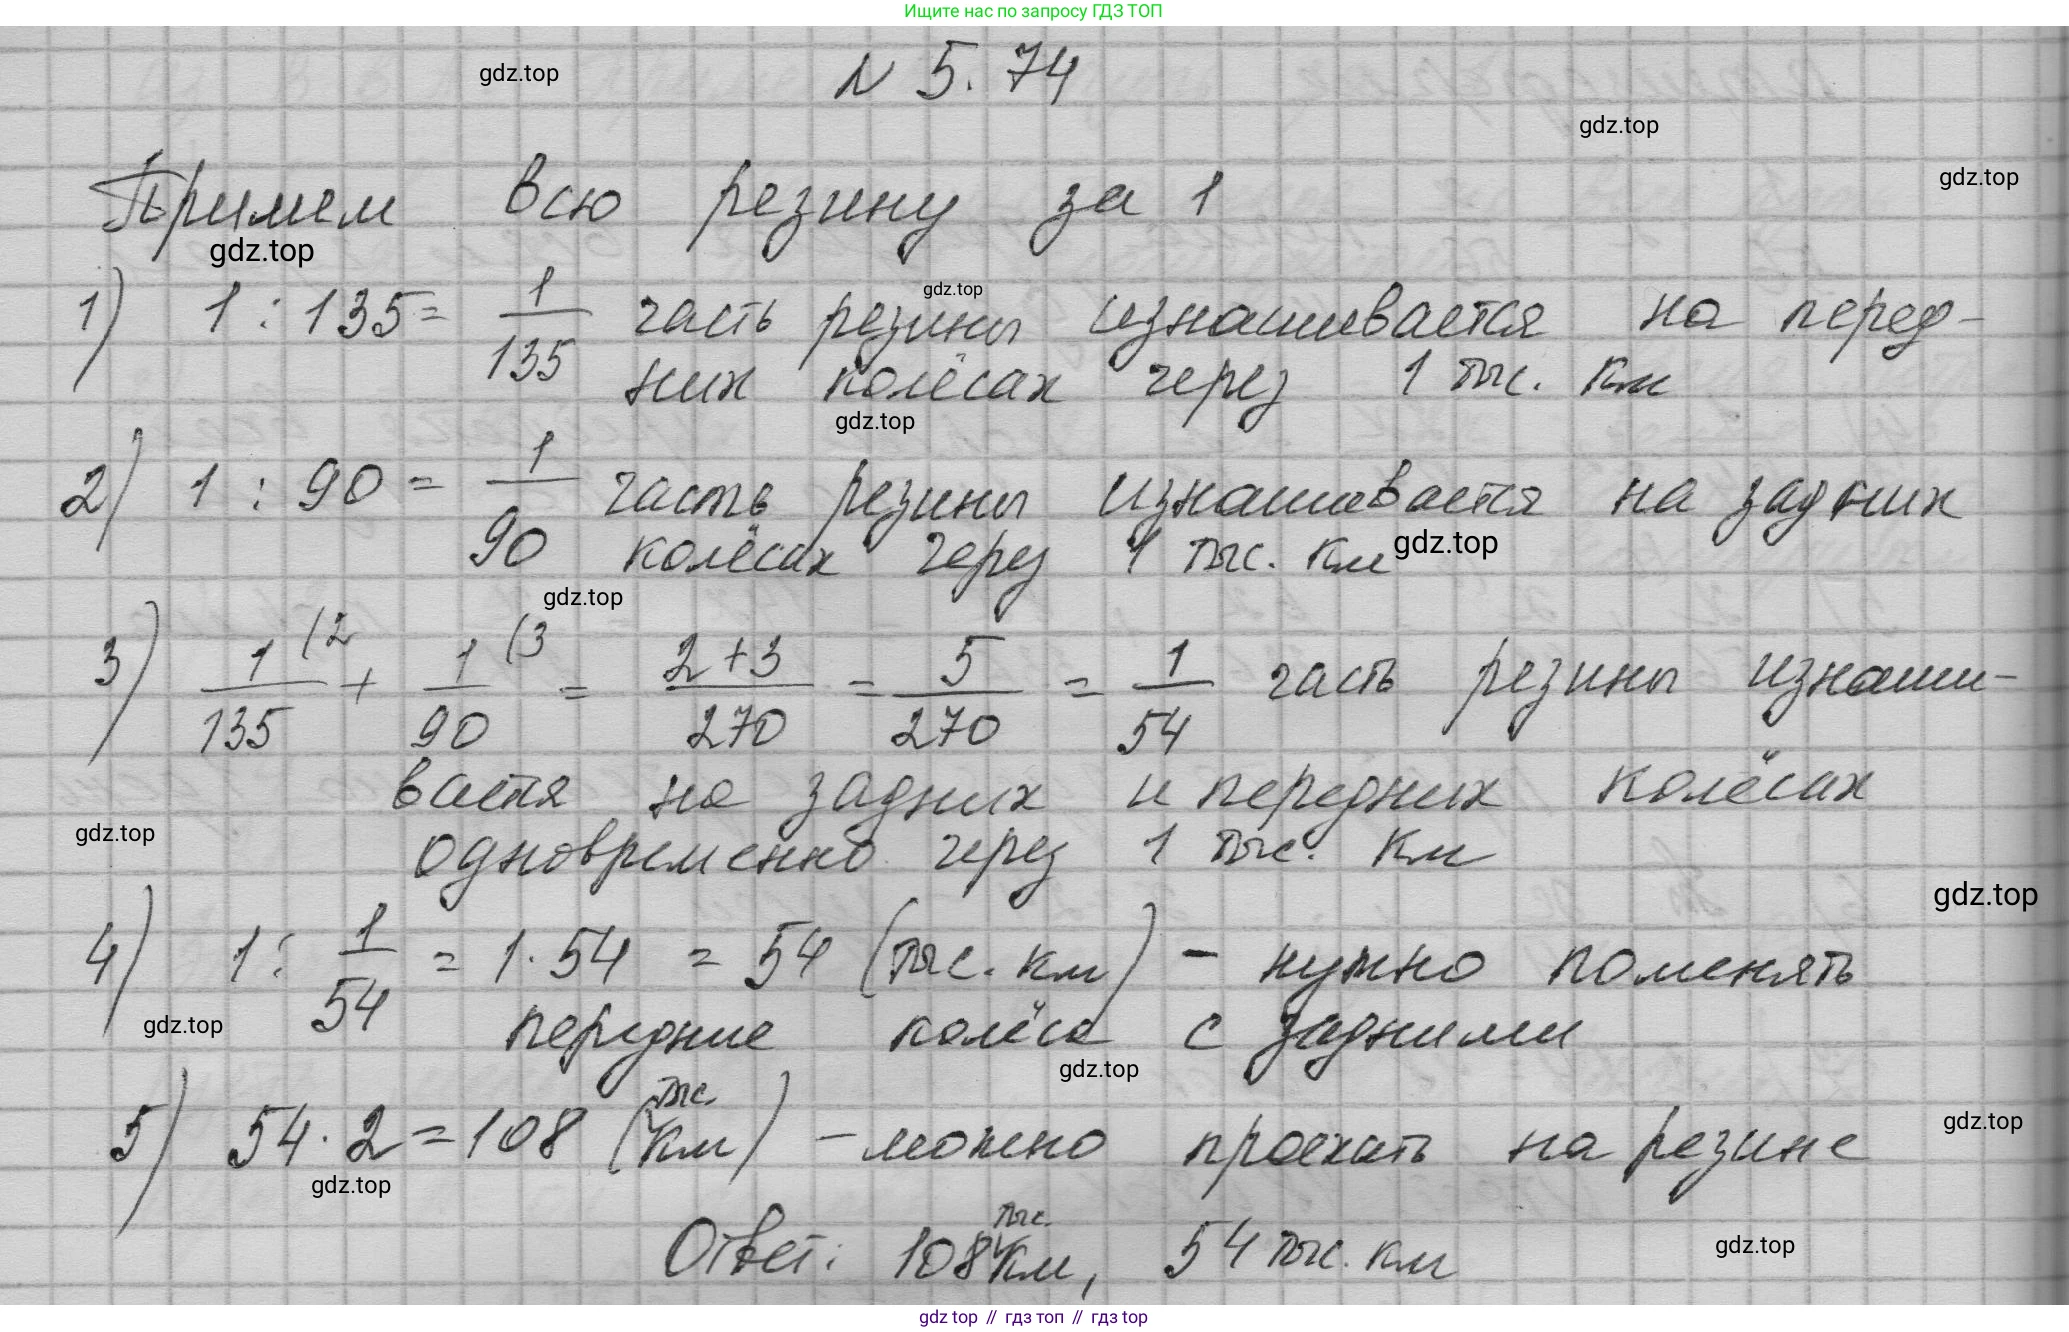 Ищите нас по запросу ГДЗ ТОП
N 5.74
gdz.top
gdz.top
gdz.top
Примем всю резину за 1
gdz.top
gdz.top
1) 1 : 135 = 1/135 часть резины изнашивается на перед-
них колёсах через 1 тыс. км
gdz.top
2) 1 : 90 = 1/90 часть резины изнашивается на задних
колёсах через 1 тыс. км
gdz.top
gdz.top
3) 1/135 (2 + 1/90 (3 = 2+3/270 = 5/270 = 1/54 часть резины изнаши-
вается на задних и передних колёсах
gdz.top
одновременно через 1 тыс. км
gdz.top
4) 1 : 1/54 = 1 · 54 = 54 (тыс. км) - нужно поменять
gdz.top
передние колёса с задними
gdz.top
5) 54 · 2 = 108 (тыс. км) - можно проехать на резине
gdz.top
gdz.top
Ответ: 108 тыс. км, 54 тыс. км
gdz.top
gdz top // гдз топ // гдз top